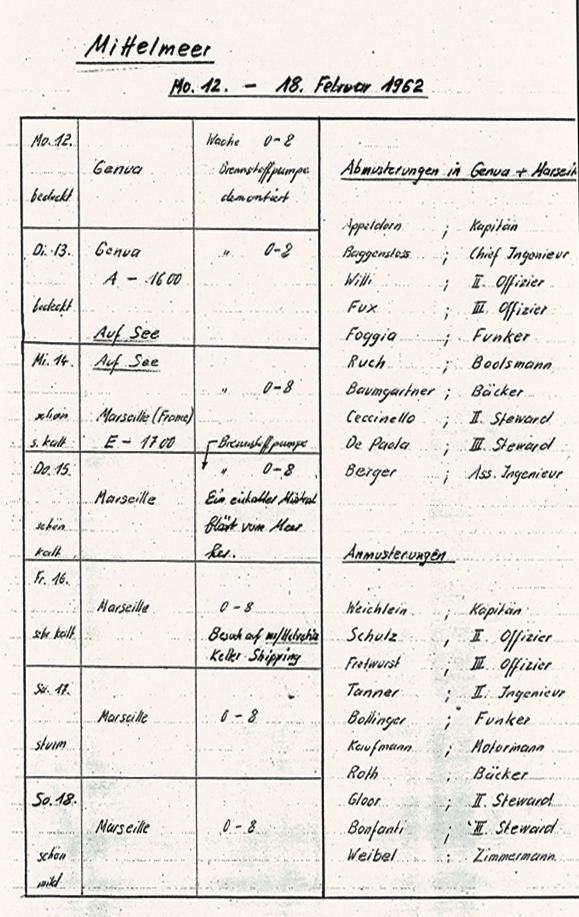 Mittelmeer
Mo. 12. – 18. Februar 1962
Mo. 12.
bedeckt
Genua
Wache 0-8
Brennstoffpumpe
demontiert
Di. 13.
bedeckt
Genua
A – 1600
Auf See
" 0-2
Mi. 14.
schön
s. kalt
Auf See
Marseille (France)
E – 1700
" 0-8
Brennstoffpumpe
Do. 15.
schön
kalt
Marseille
" 0-8
Ein eiskalter Mistral
bläst vom Meer
her.
Fr. 16.
sehr kalt
Marseille
0-8
Besuch auf
Keller Shipping
Sa. 17.
sturm
Marseille
0-8
So. 18.
schön
mild
Marseille
0-8
Abmusterungen in Genua + Marseill
Appeldorn ; Kapitän
Baggenstoss ; Chief Ingenieur
Willi ; II. Offizier
Fux ; III. Offizier
Foggia ; Funker
Ruch ; Bootsmann
Baumgartner ; Bäcker
Ceccinello ; II. Steward
De Paola ; III. Steward
Berger ; Ass. Ingenieur
Anmusterungen
Weichlein ; Kapitän
Schulz ; II. Offizier
Fretwurst ; III. Offizier
Tanner ; II. Ingenieur
Bollinger ; Funker
Kaufmann ; Motormann
Roth ; Bäcker
Gloor ; II. Steward
Bonfanti ; III. Steward
Weibel ; Zimmermann